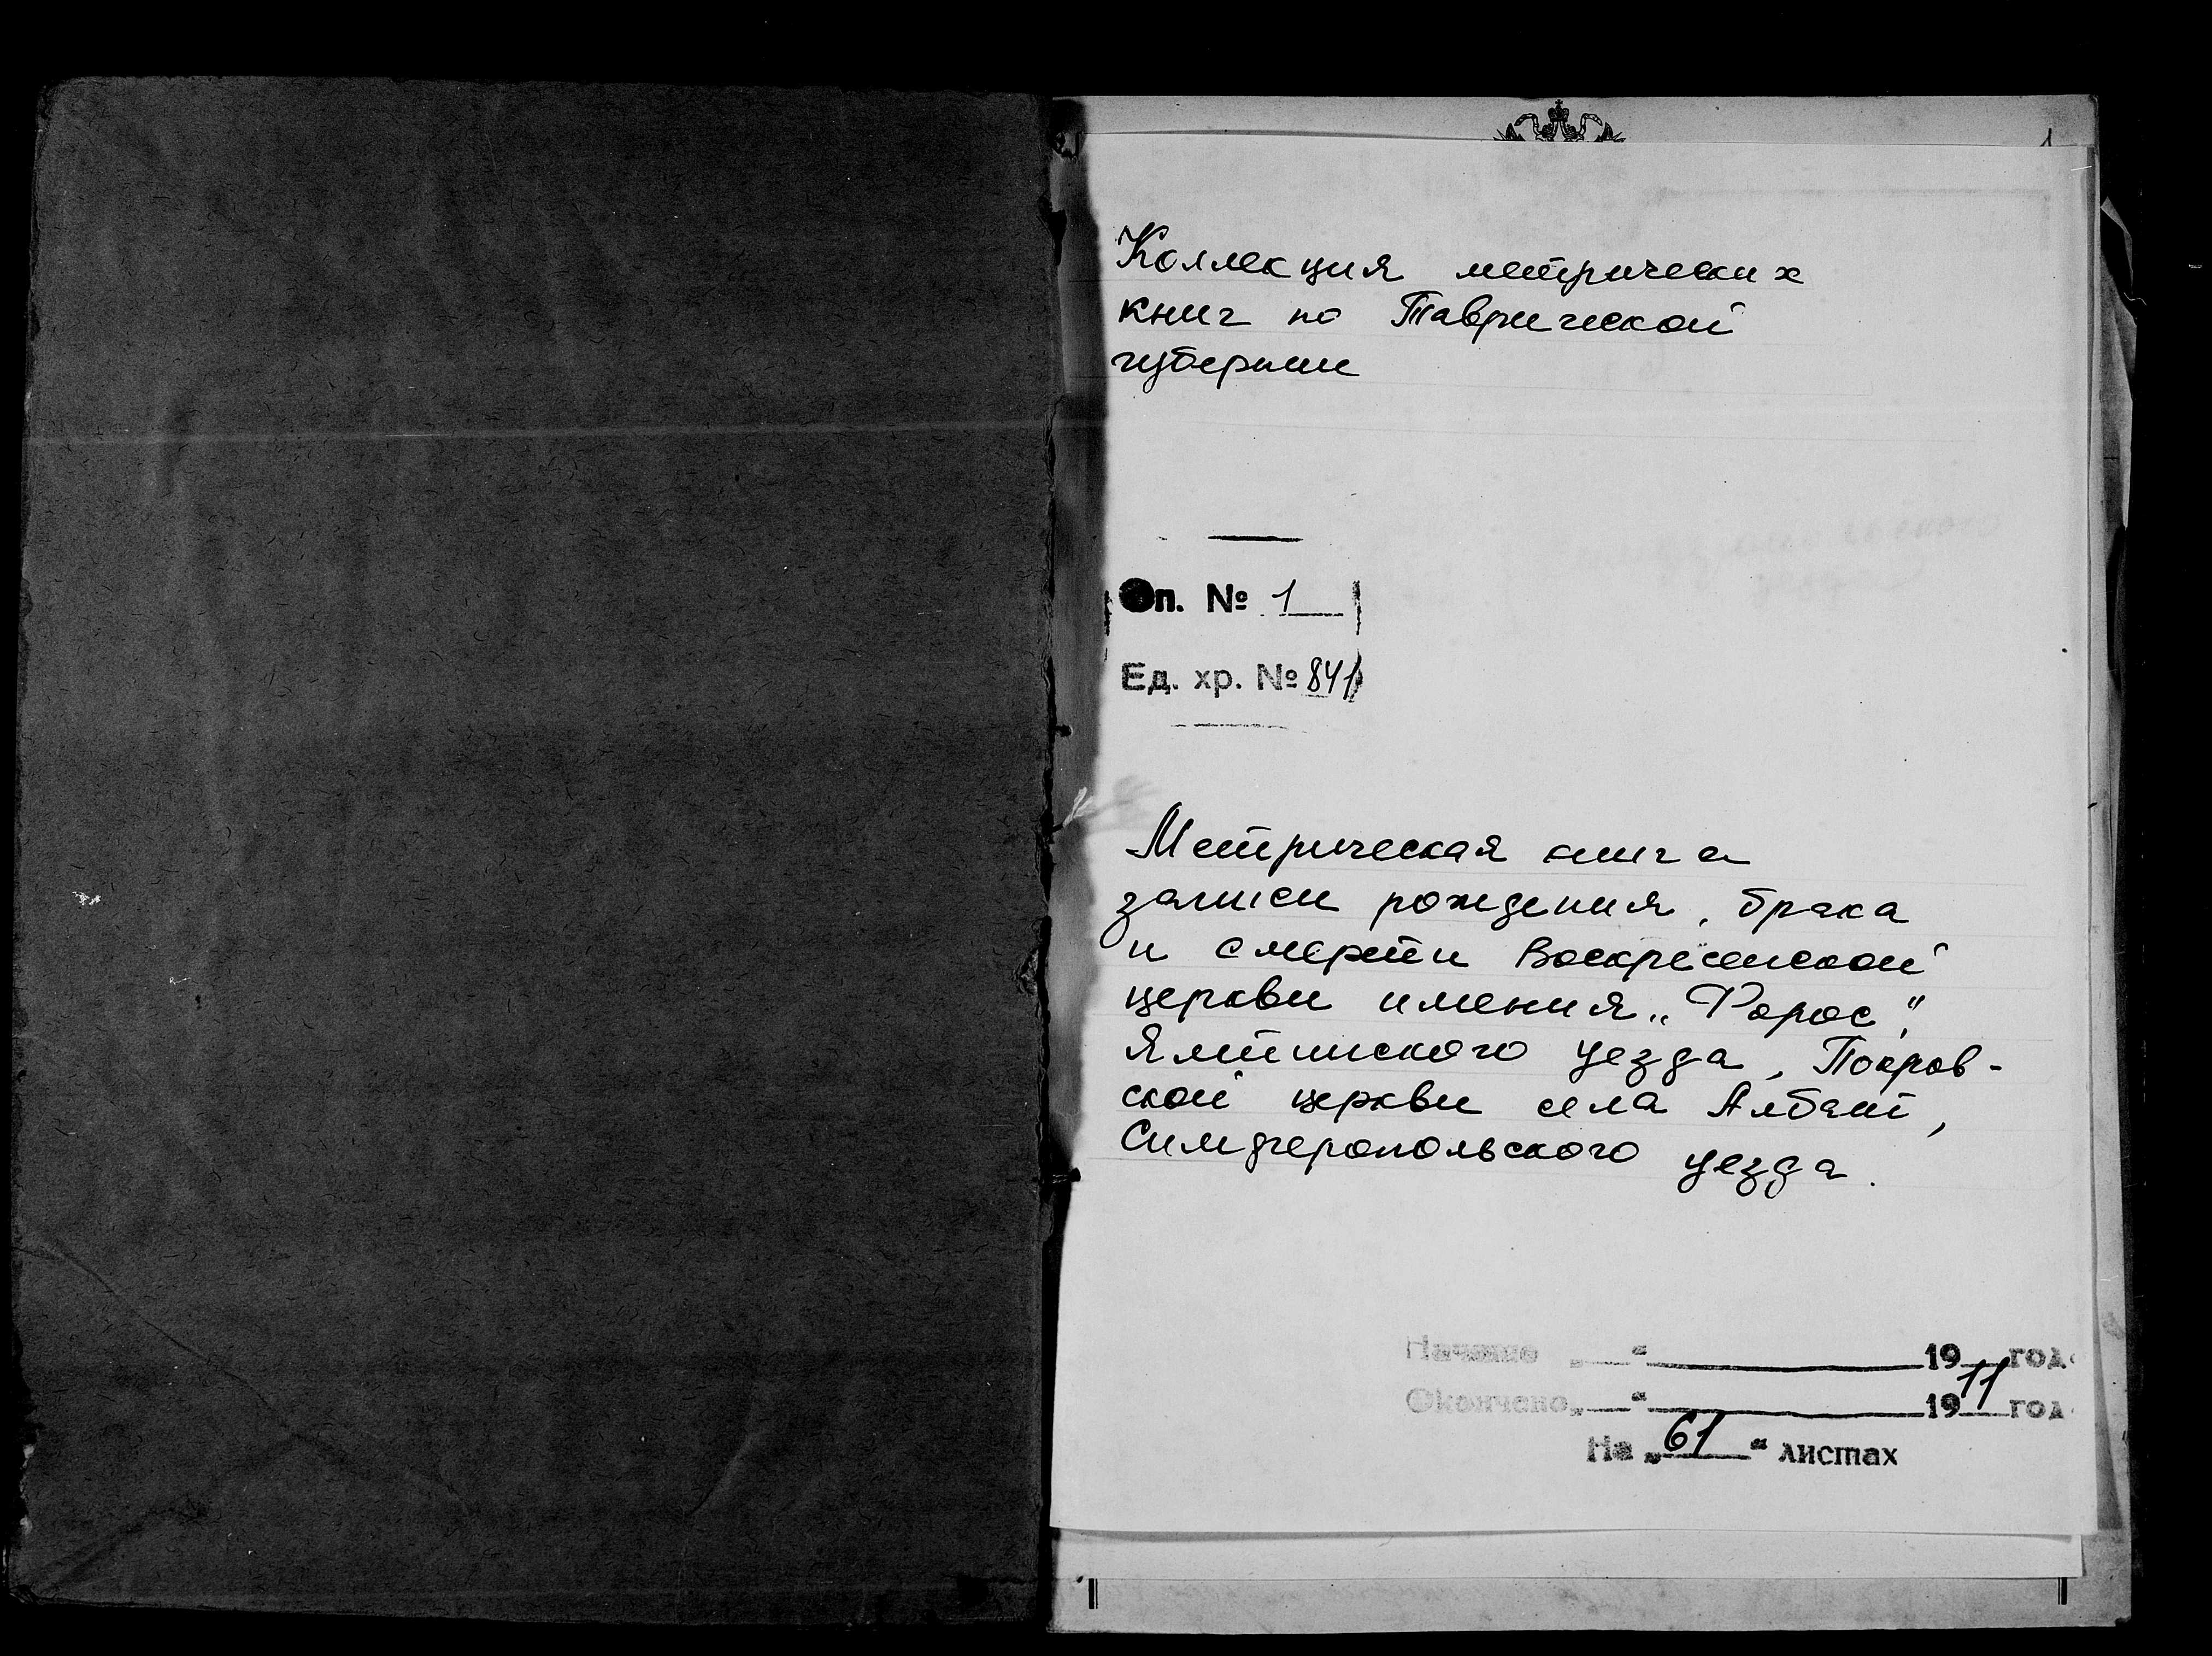 Коллекция метрических
книг по Таврической
губернии
Оп. № 1
Ед. хр. № 841
Метрическая книга
записи рождения, брака
и смерти Воскресенской
церкви имения „Форос",
Ялтинского уезда, Покров-
ской церкви села Албат,
Симферопольского уезда.
Начато „ “ 19 год
Окончено „ “ 1911 год
На „61“ листах